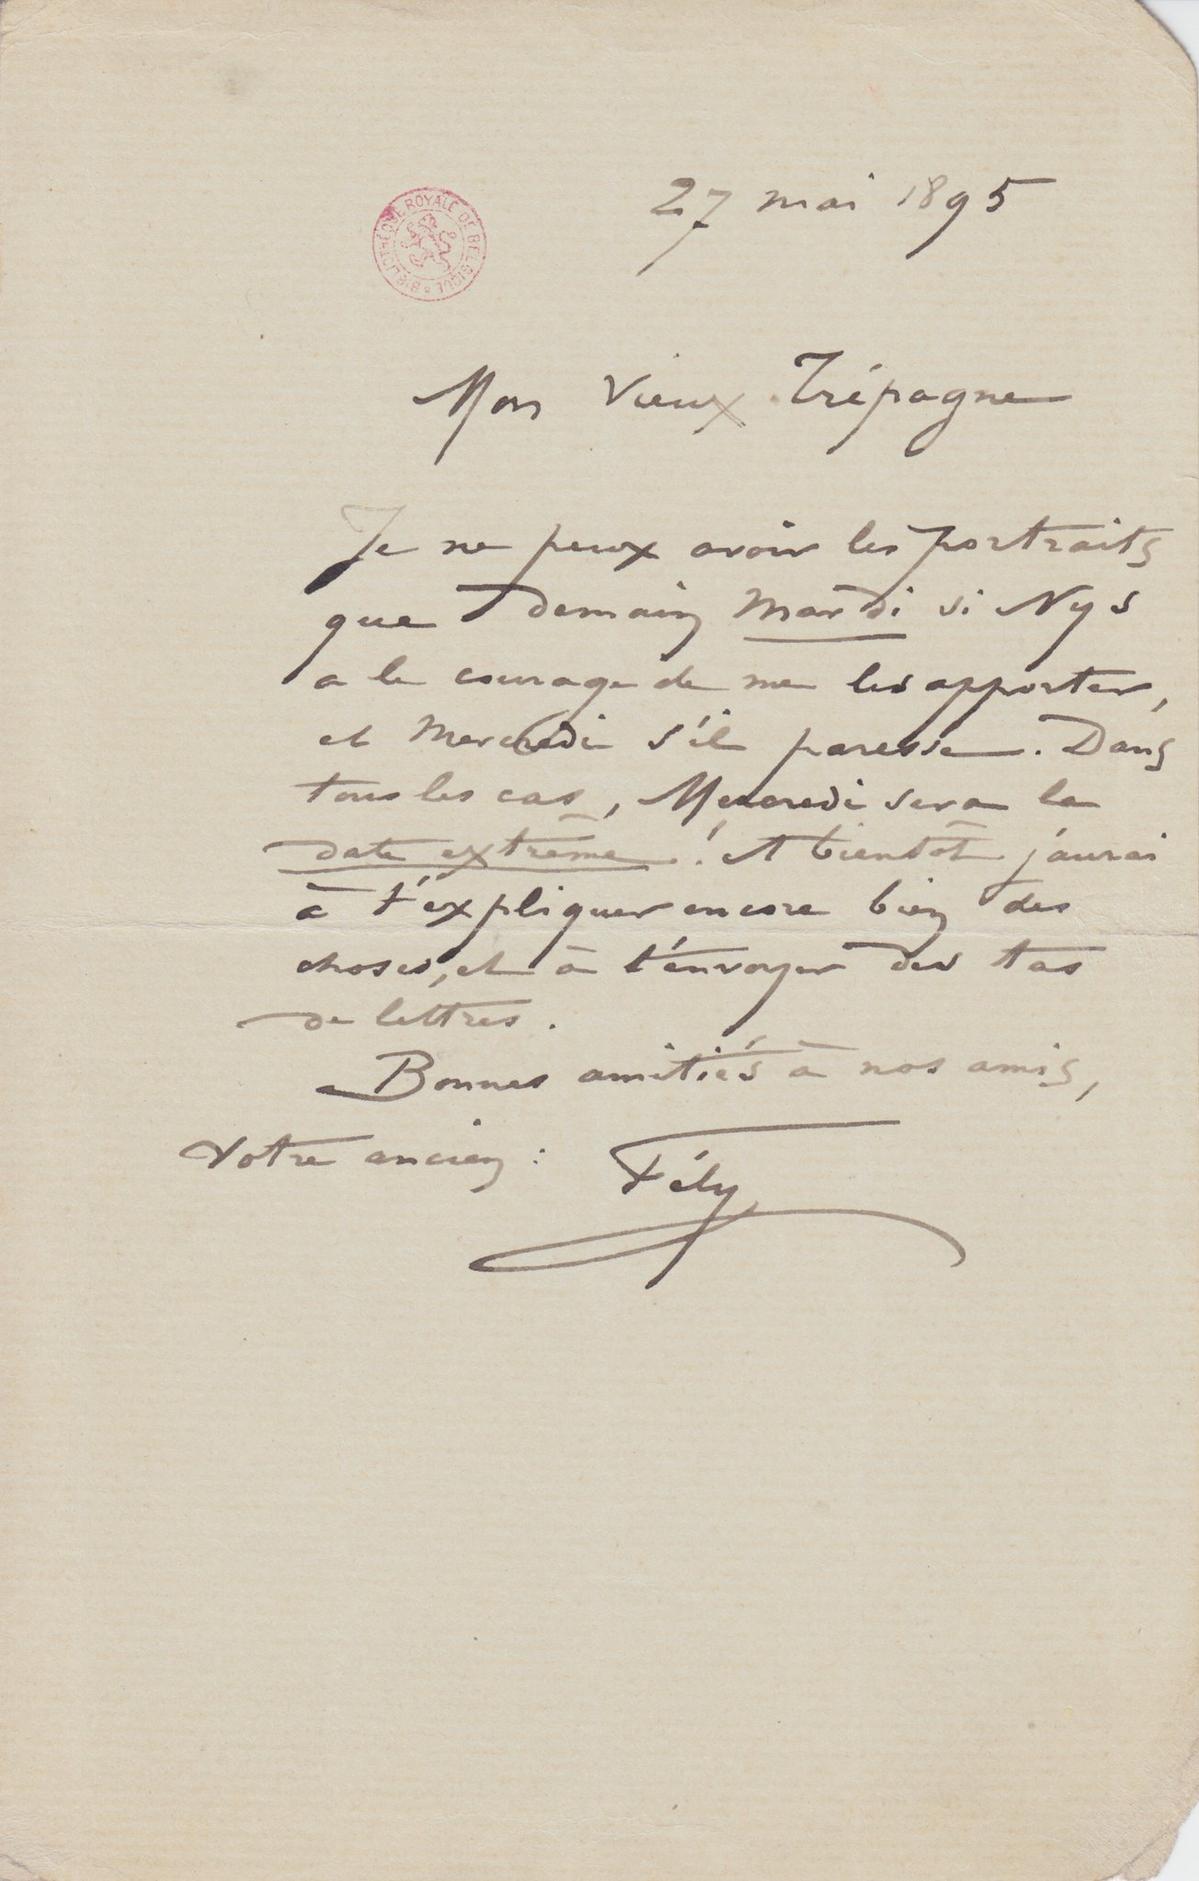 27 mai 1895
BIBLIOTHÈQUE ROYALE DE BELGIQUE
Mon Vieux Trépagne
Je ne peux avoir les portraits
que demain Mardi si Nys
a le courage de me les apporter,
et Mercredi s'il paresse. Dans
tous les cas, Mercredi sera la
date extrême ! et bientôt j'aurai
à t'expliquer encore bien des
choses, et à t'envoyer des tas
de lettres.
Bonnes amitiés à nos amis,
Votre ancien : Fély